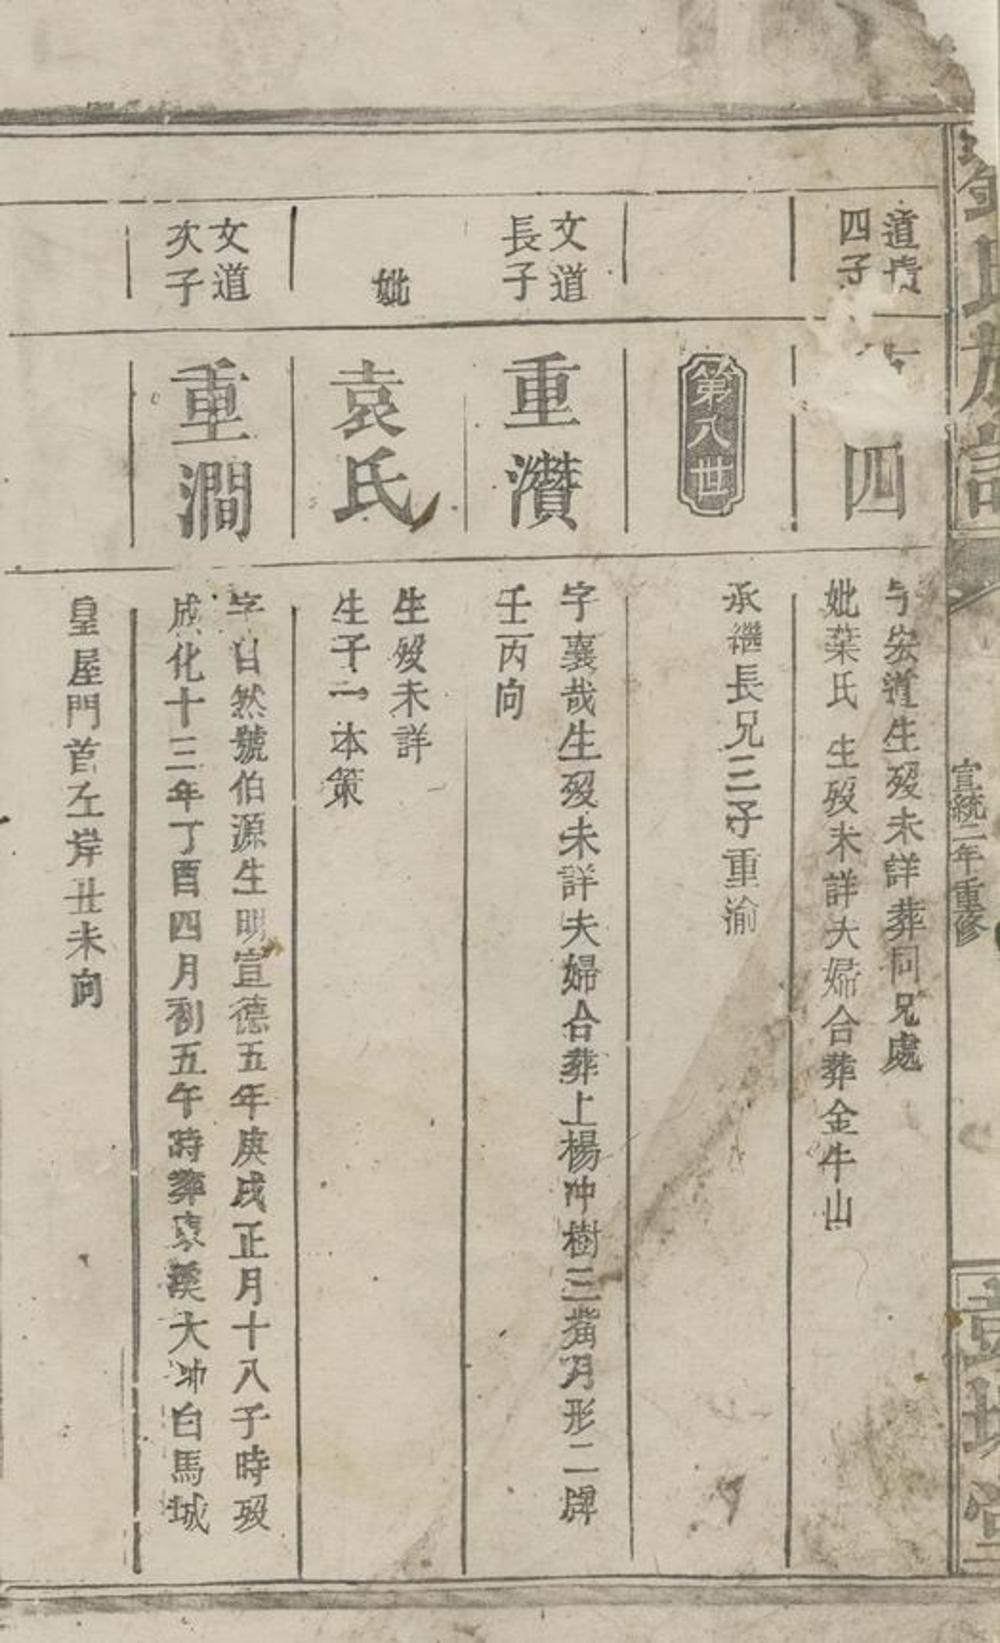 氏族譜
宣統二年重修
堂
道
四子
四
宏道生歿未詳葬同兄處
妣葉氏 生歿未詳夫婦合葬金牛山
第八世
承繼長兄三子重渝
文道
長子
重濽
字襄哉生歿未詳夫婦合葬上楊冲樹三嘴月形二牌
壬丙向
妣
袁氏
生歿未詳
生子一本策
文道
次子
重澗
字自然號伯源生明宣德五年庚戌正月十八子時歿
成化十三年丁酉四月初五午時葬東溪大冲白馬城
皇屋門首左岸丑未向